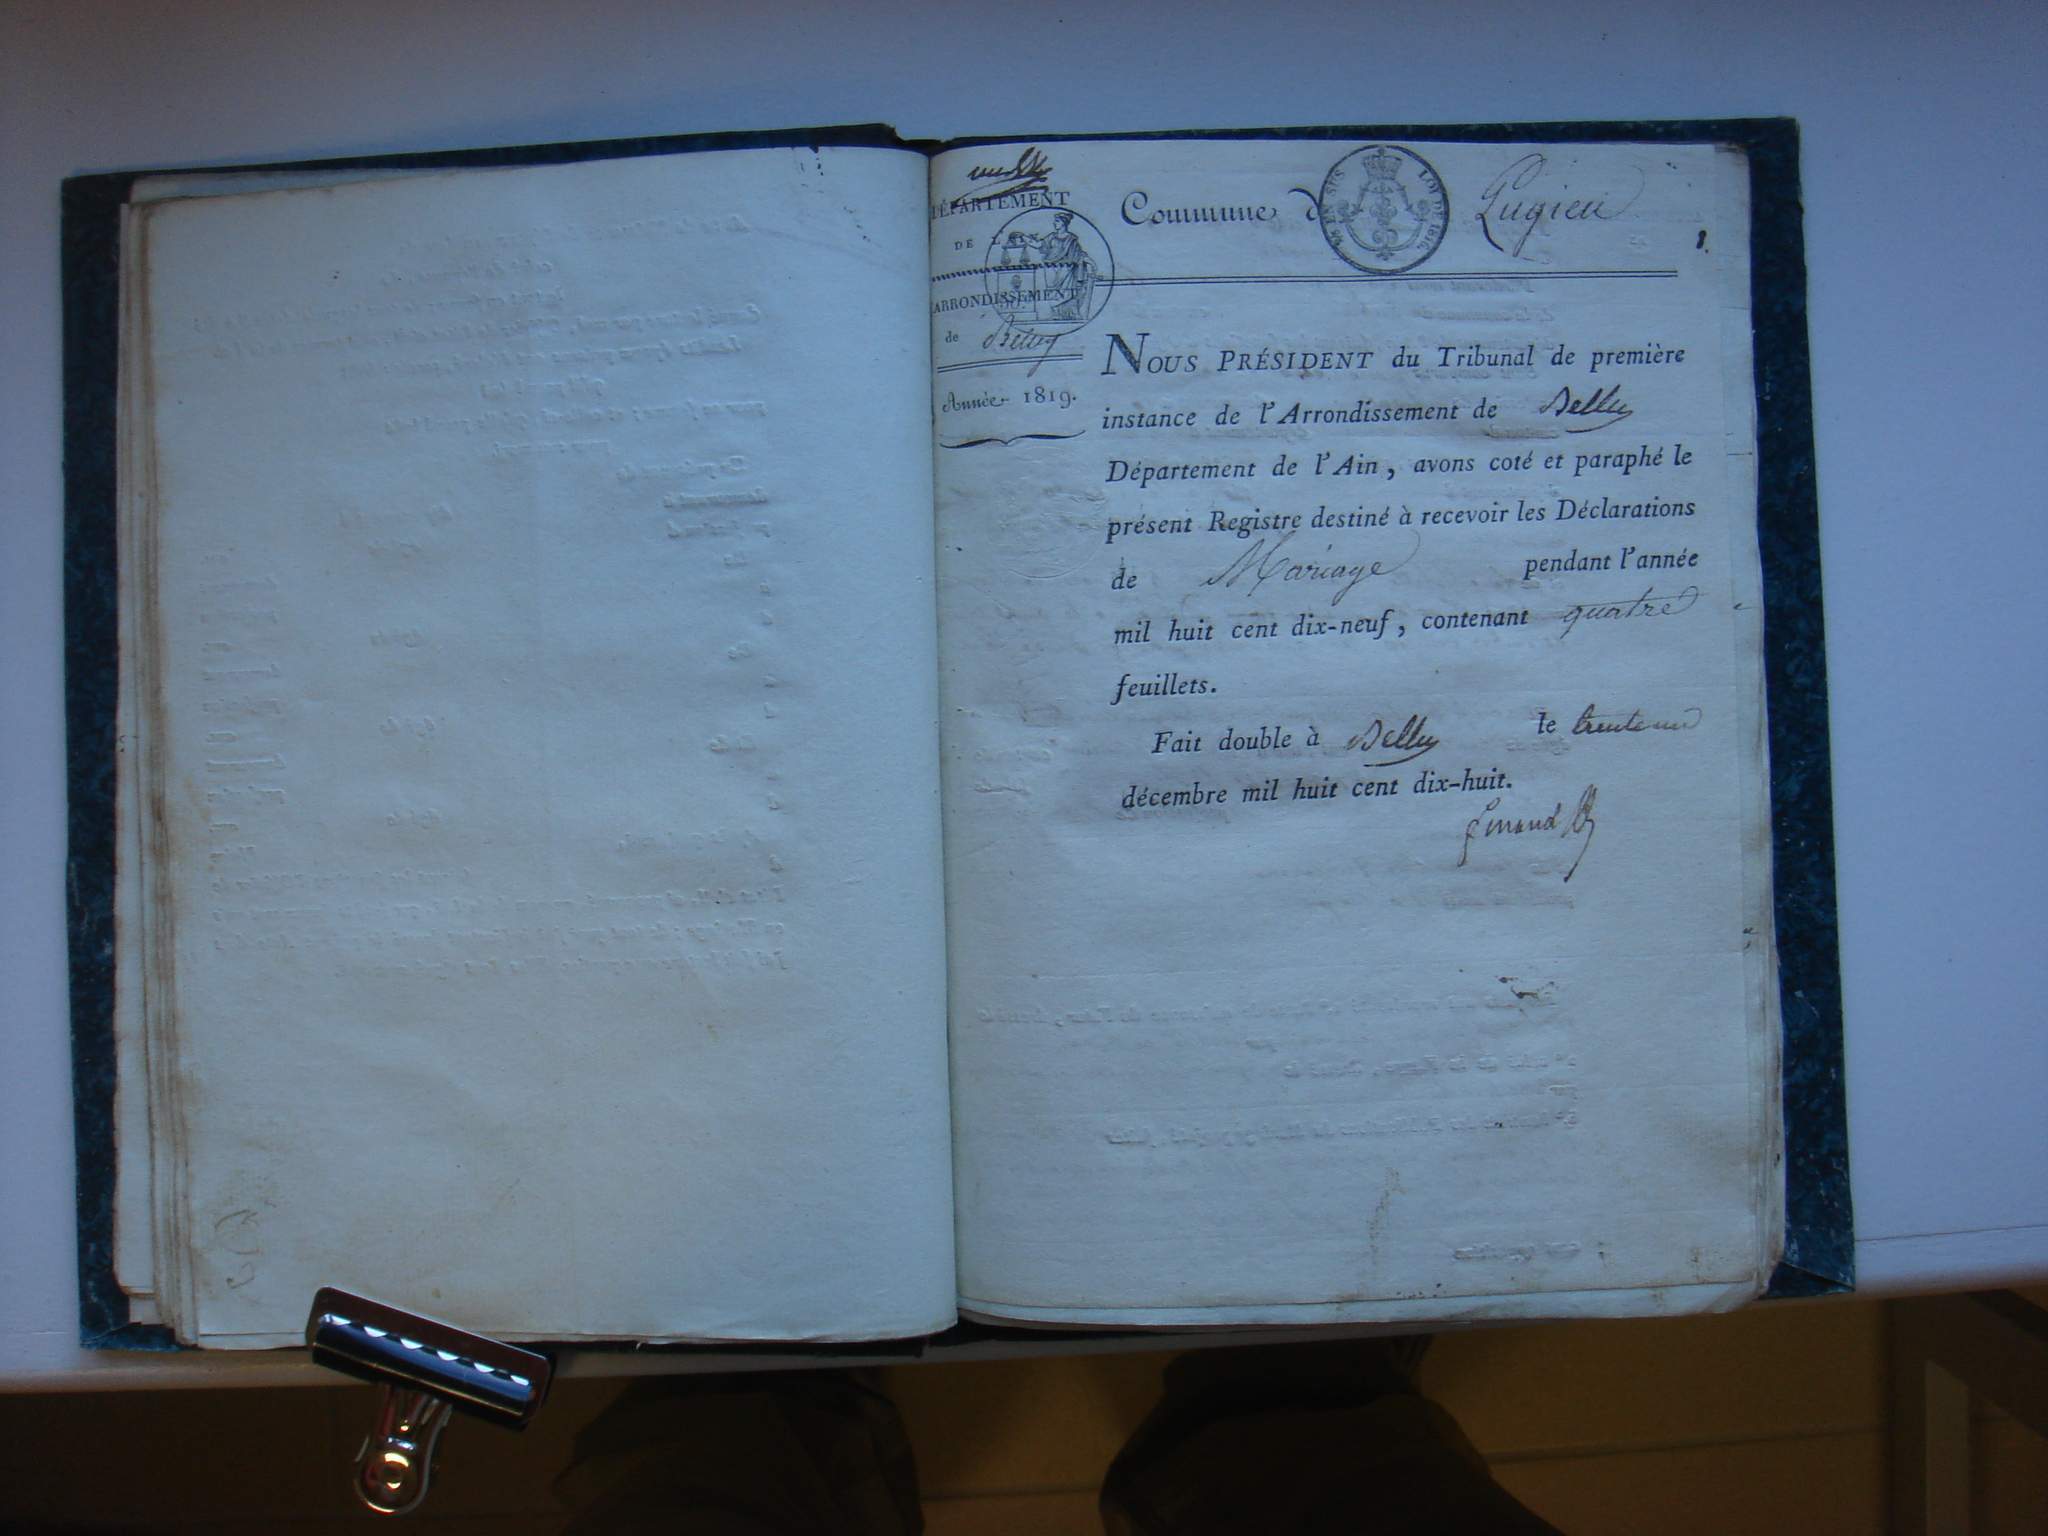 DÉPARTEMENT
DE L'AIN.
ARRONDISSEMENT
de Belley
Année 1819.
Commune de Lugieu
¼ EN SUS LOI DE 1816.
1.
NOUS PRÉSIDENT du Tribunal de première
instance de l'Arrondissement de Belley
Département de l'Ain, avons coté et paraphé le
présent Registre destiné à recevoir les Déclarations
de Mariage pendant l'année
mil huit cent dix-neuf, contenant quatre
feuillets.
Fait double à Belley le trente un
décembre mil huit cent dix-huit.